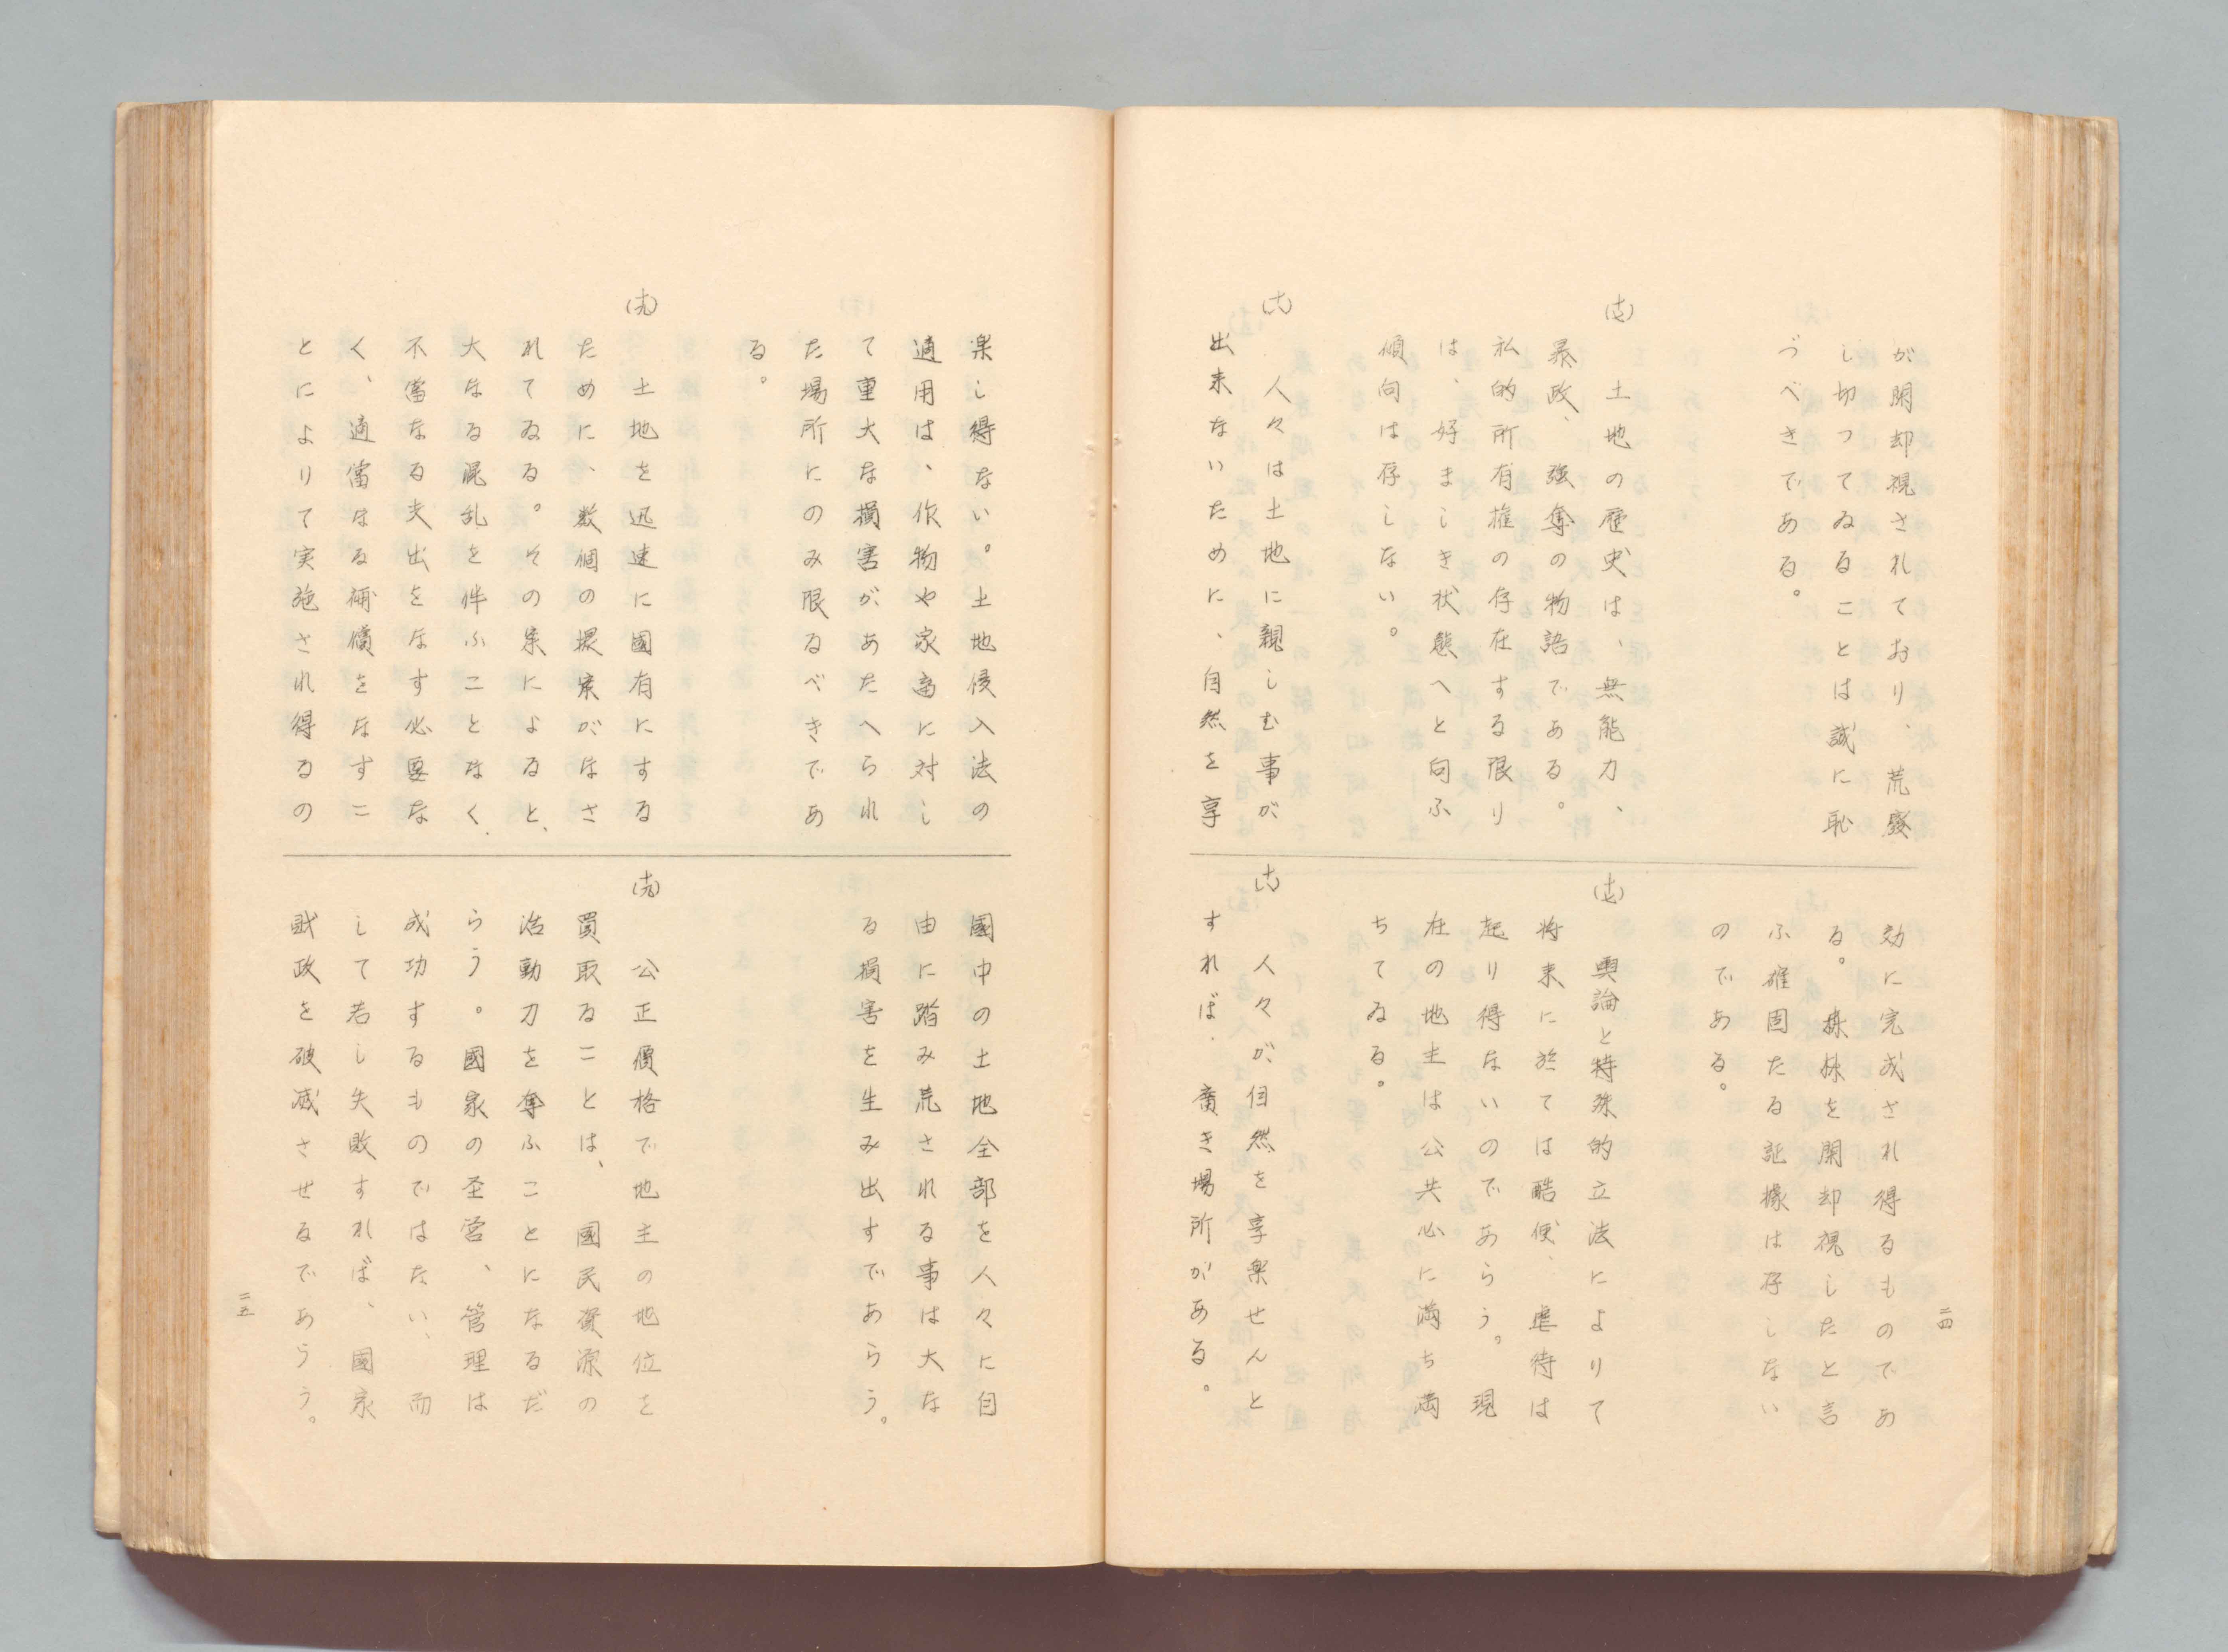 が閑却視されており、荒廃
し切つてゐることは誠に恥
づべきである。
(十七)
土地の歴史は、無能力、
暴政、強奪の物語である。
私的所有権の存在する限り
は、好ましき状態へと向ふ
傾向は存しない。
(十八)
人々は土地に親しむ事が
出来ないために、自然を享
効に完成され得るものであ
る。森林を閑却視したと言
ふ確固たる証據は存しない
のである。
(十七)
輿論と特殊的立法によりて
将来に於ては酷使、虐待は
起り得ないのであらう。現
在の地主は公共心に満ち満
ちてゐる。
(十八)
人々が、自然を享楽せんと
すれば、廣き場所がある。
二四
楽し得ない。土地侵入法の
適用は、作物や家畜に対し
て重大な損害があたへられ
た場所にのみ限るべきであ
る。
(十九)
土地を迅速に國有にする
ために、数個の提案がなさ
れてゐる。その案によると、
大なる混乱を伴ふことなく、
不當なる支出をなす必要な
く、適當なる補償をなすこ
とによりて実施され得るの
國中の土地全部を人々に自
由に踏み荒される事は大な
る損害を生み出すであらう。
(十九)
公正價格で地主の地位を
買取ることは、國民資源の
活動力を奪ふことになるだ
らう。國家の経営、管理は
成功するものではない、而
して若し失敗すれば、國家
財政を破滅させるであらう。
二五